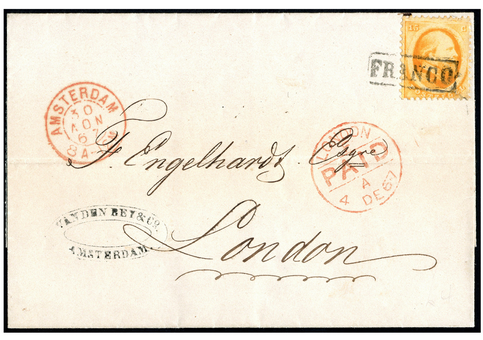 FRANCO
AMSTERDAM
30
NOV
67
8A
F. Engelhardt Esqre
LONDON
PAID
A
4 DE 67
VAN DEN BEY & CO.
AMSTERDAM.
London